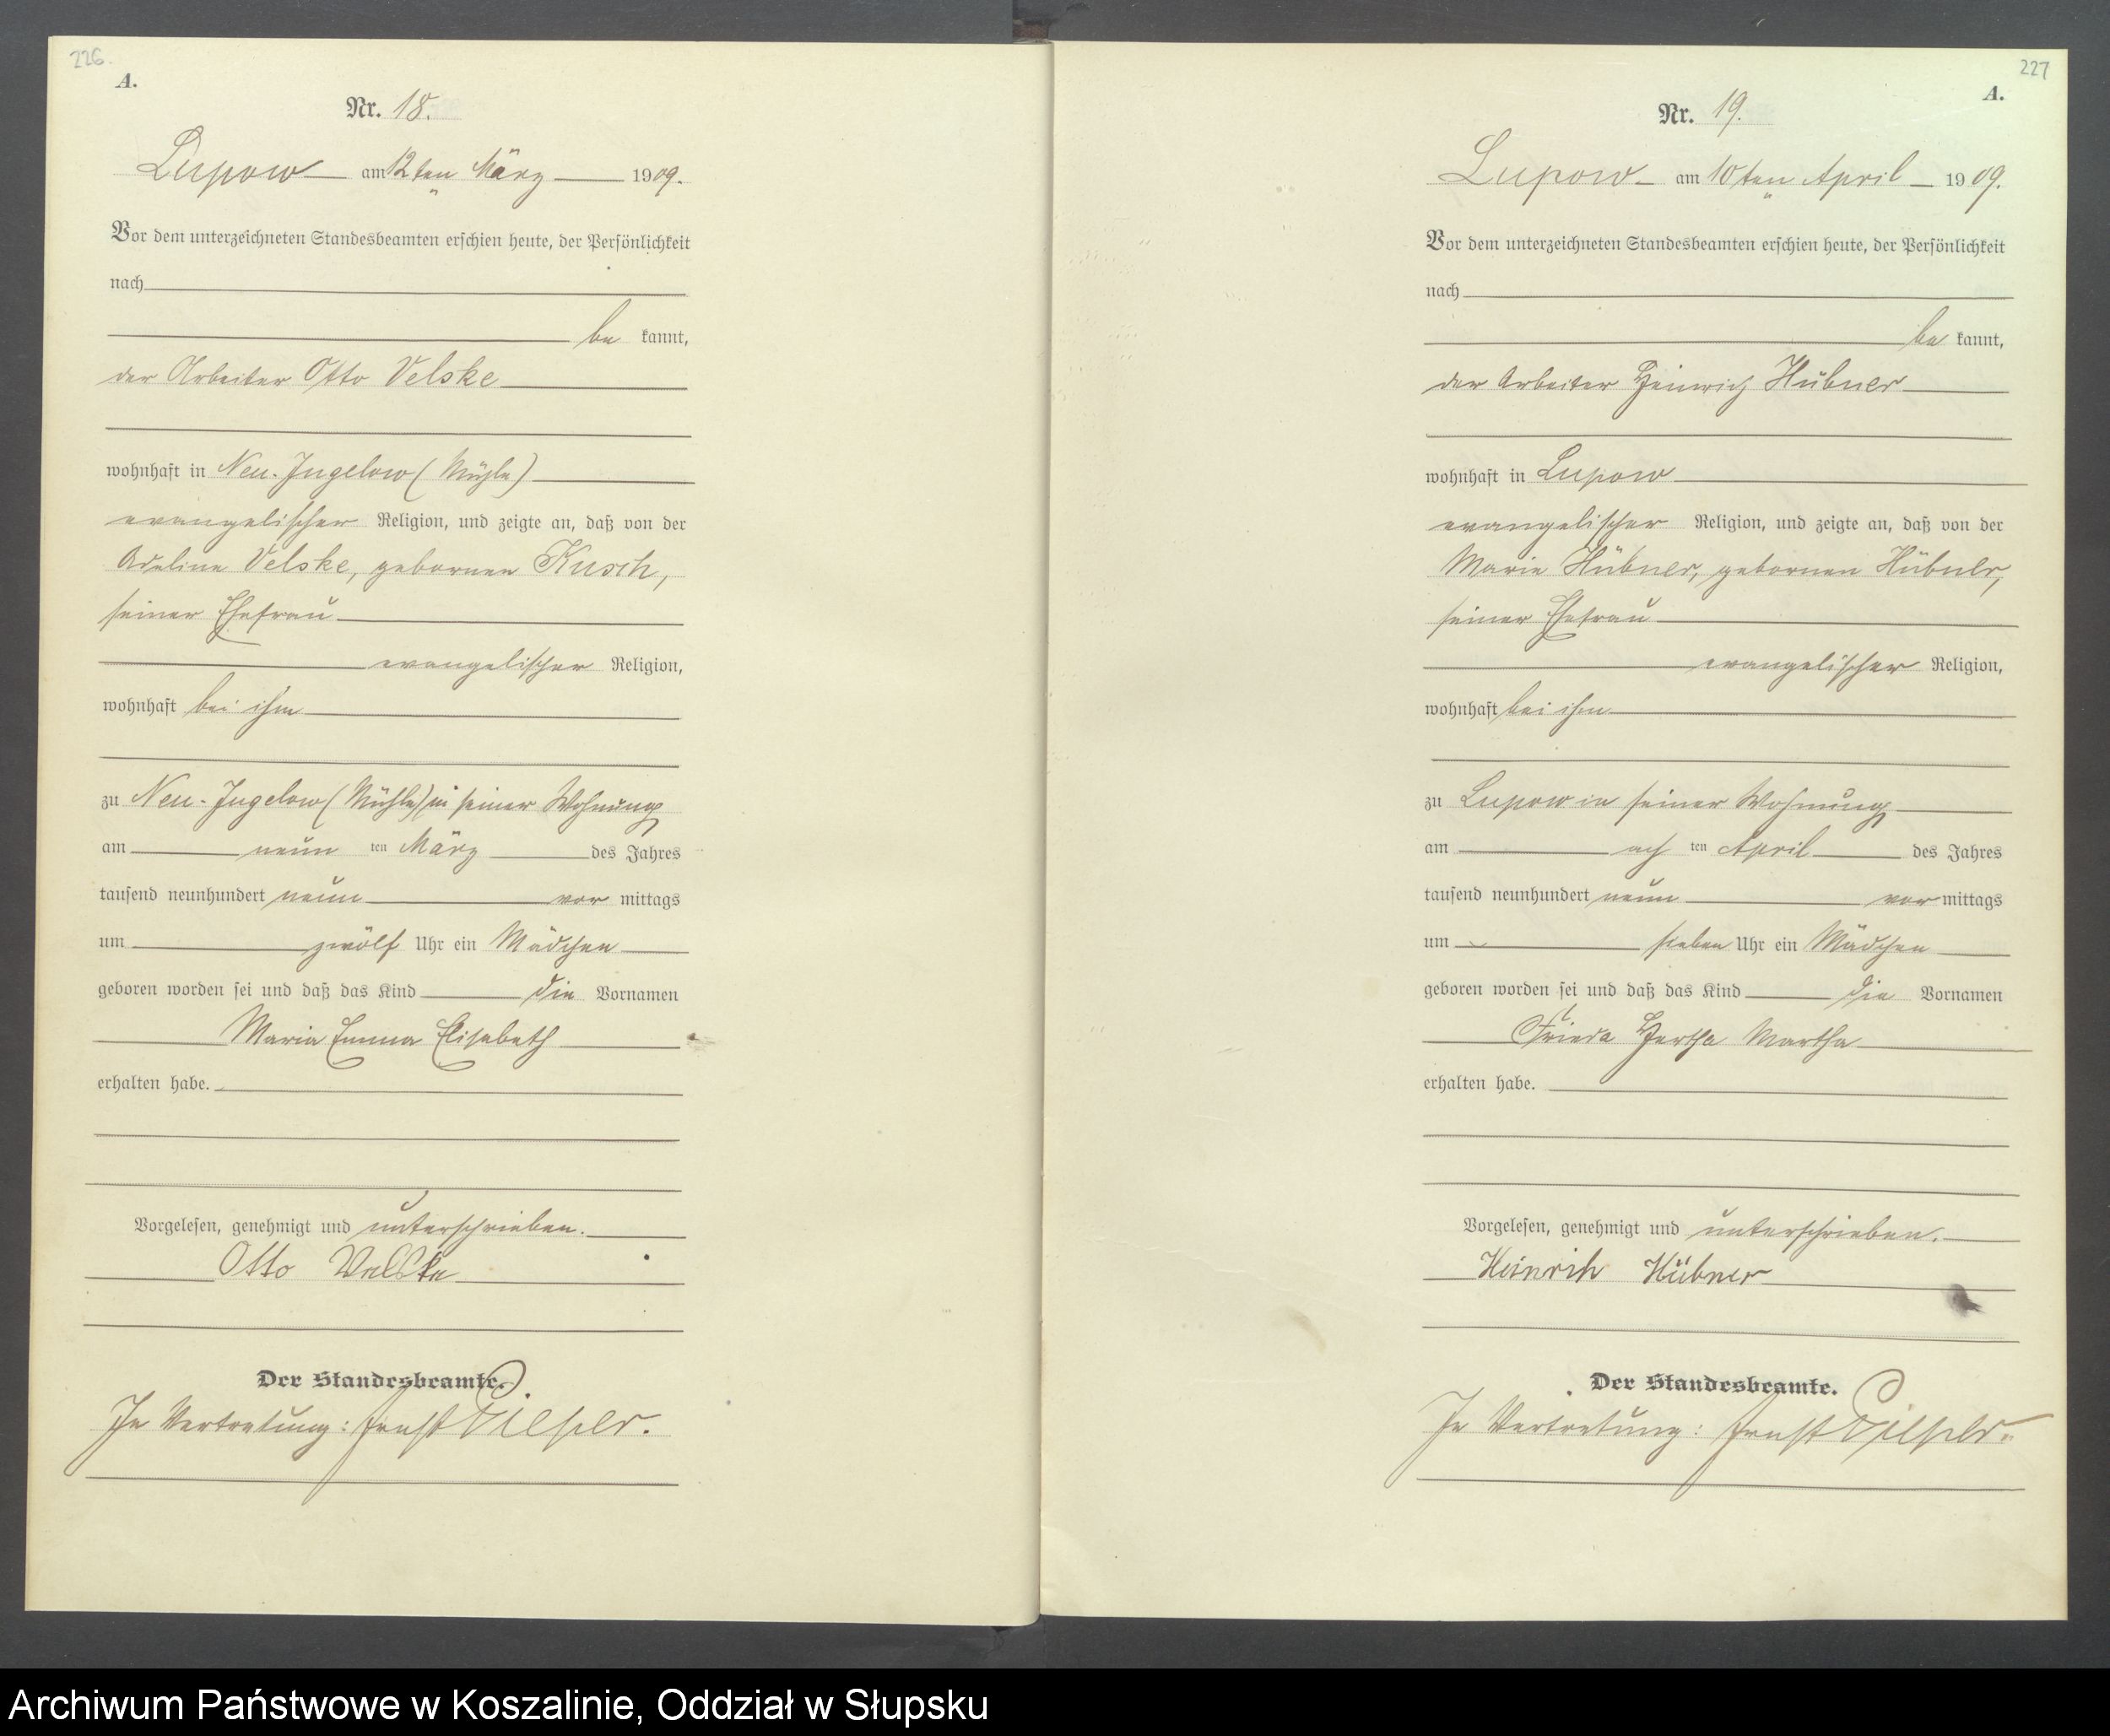 226.
A.
Nr. 18.
Lupow am 12ten März 1909.
Vor dem unterzeichneten Standesbeamten erschien heute, der Persönlichkeit
nach
be kannt,
der Arbeiter Otto Velske
wohnhaft in Neu-Jugelow (Mühle)
evangelischer Religion, und zeigte an, daß von der
Adeline Velske, gebornen Kusch,
seiner Ehefrau
evangelischer Religion,
wohnhaft bei ihm
zu Neu-Jugelow (Mühle) in seiner Wohnung
am neun ten März des Jahres
tausend neunhundert neun vor mittags
um zwölf Uhr ein Mädchen
geboren worden sei und daß das Kind die Vornamen
Maria Emma Elisabeth
erhalten habe.
Vorgelesen, genehmigt und unterschrieben.
Otto Velske
Der Standesbeamte.
In Vertretung: Ernst
227
A.
Nr. 19.
Lupow am 10ten April 1909.
Vor dem unterzeichneten Standesbeamten erschien heute, der Persönlichkeit
nach
be kannt,
der Arbeiter Heinrich Hübner
wohnhaft in Lupow
evangelischer Religion, und zeigte an, daß von der
Marie Hübner, gebornen Hübner,
seiner Ehefrau
evangelischer Religion,
wohnhaft bei ihm
zu Lupow in seiner Wohnung
am ach ten April des Jahres
tausend neunhundert neun vor mittags
um sieben Uhr ein Mädchen
geboren worden sei und daß das Kind die Vornamen
Frieda Hertha Martha
erhalten habe.
Vorgelesen, genehmigt und unterschrieben.
Heinrih Hübner
Der Standesbeamte.
In Vertretung: Ernst
Archiwum Państwowe w Koszalinie, Oddział w Słupsku